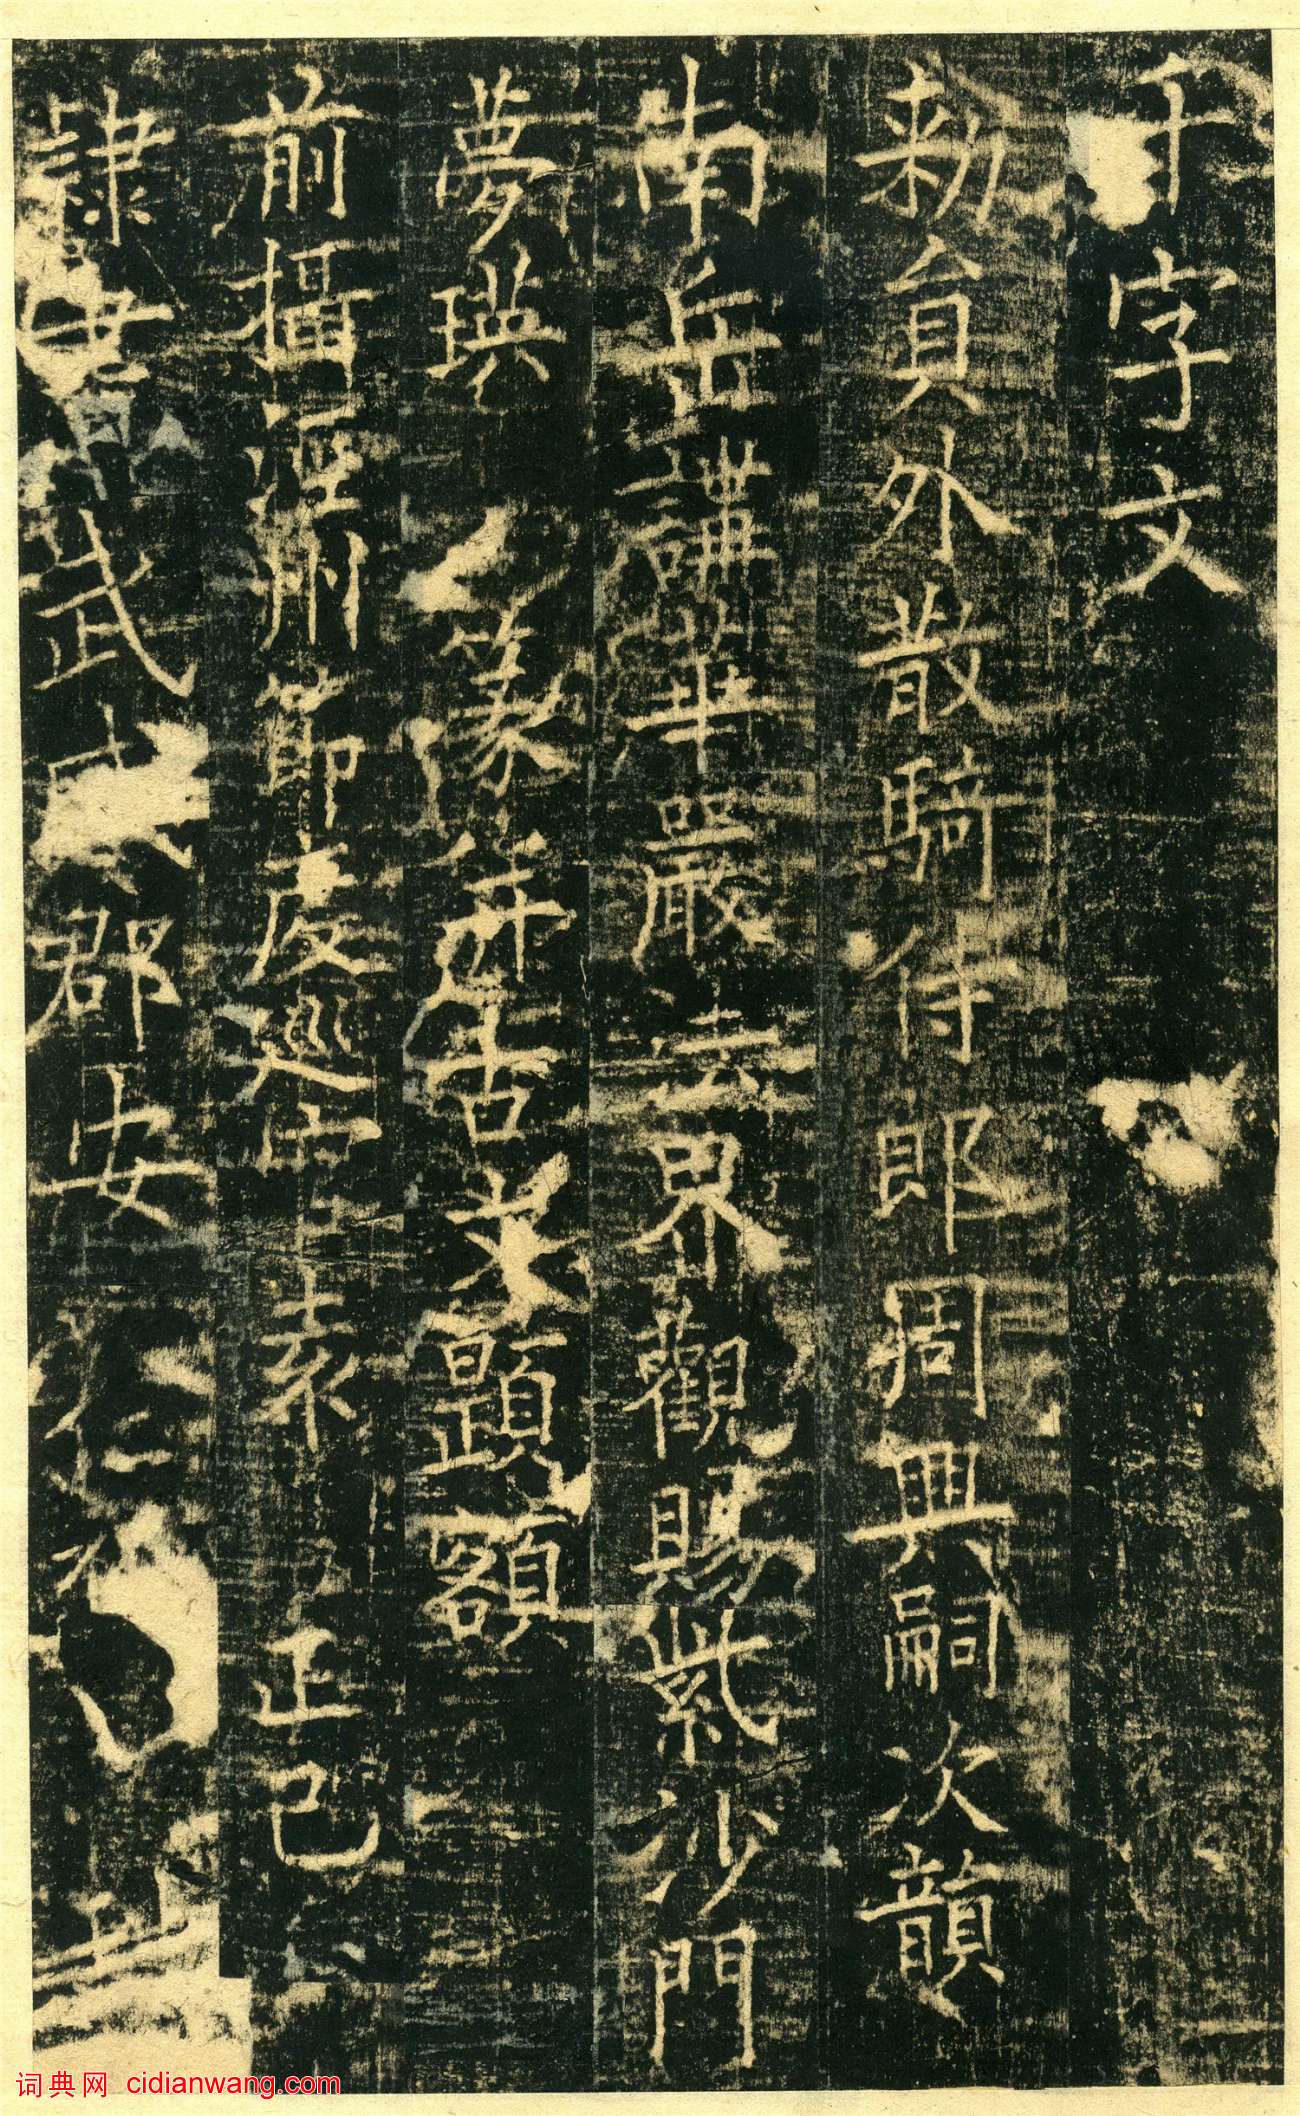 千字文
勑員外散騎侍郎周興嗣次韻
南岳講華嚴法界觀賜紫沙門
夢瑛 篆并古文題額
前攝涇州節度巡官 袁正己
隸書 武功郡安
词典网 cidianwang.com